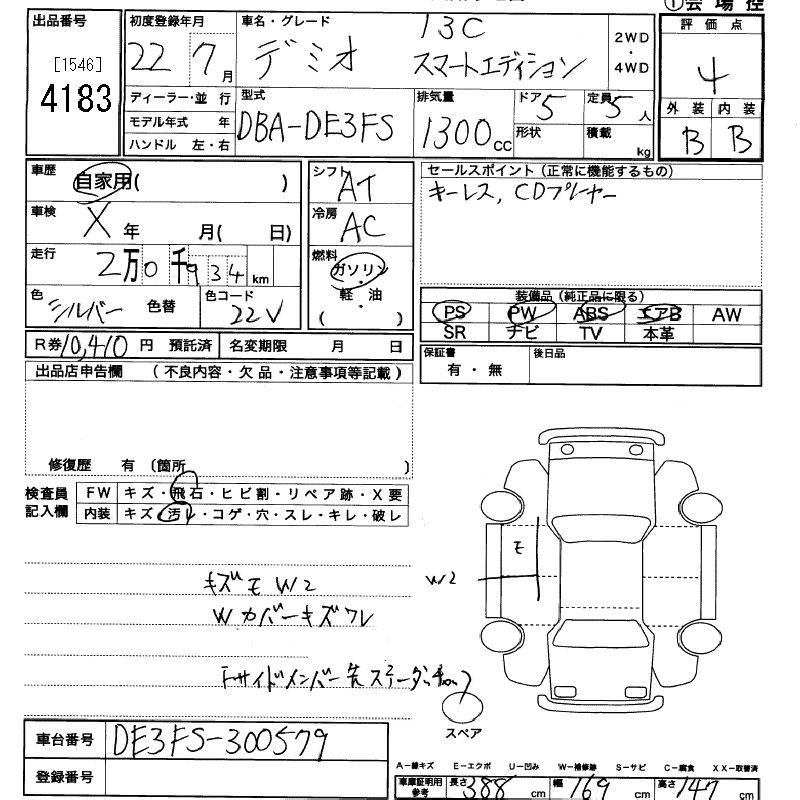 ①会場控
出品番号 [1546] 4183
初度登録年月 22 7月
車名・グレード デミオ 13C スマートエディション
2WD・4WD
評価点 4
外装 B 内装 B
ディーラー・並行
モデル年式 年
ハンドル 左・右
型式 DBA-DE3FS
排気量 1300cc
ドア 5
定員 5人
形状
積載 kg
車歴 自家用( )
車検 X 年 月( 日)
走行 2万0千934km
色 シルバー 色替
色コード 22V
シフト AT
冷房 AC
燃料 ガソリン・軽油
( )
セールスポイント(正常に機能するもの)
キーレス, CDプレーヤー
装備品(純正品に限る)
PS PW ABS エアB AW
SR ナビ TV 本革
R券 10,410円 預託済 名変期限 月 日
保証書 有・無
後日品
出品店申告欄 (不良内容・欠品・注意事項等記載)
修復歴 有〔箇所 〕
検査員記入欄
FW キズ・飛石・ヒビ割・リペア跡・X要
内装 キズ・汚レ・コゲ・穴・スレ・キレ・破レ
キズモW2
Wカバーキズワレ
モ
W2
スペア
車台番号 DE3FS-300579
登録番号
A-線キズ E-エクボ U-凹み W-補修跡 S-サビ C-腐食 XX-取替済
車庫証明用参考 長さ 388cm 幅 169cm 高さ 147cm